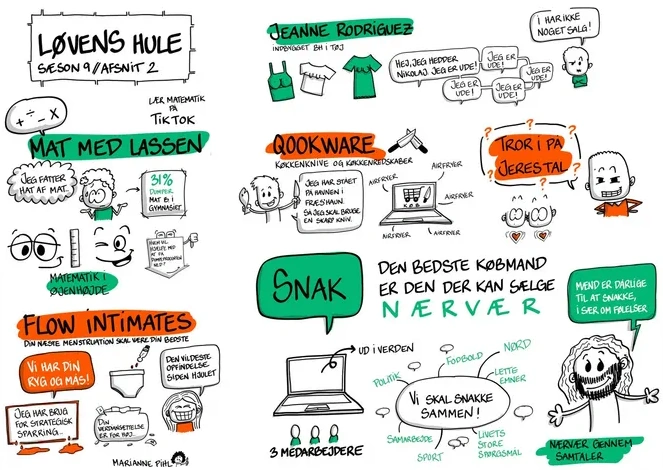 LØVENS HULE
SÆSON 9 // AFSNIT 2
+ ÷ - x
LÆR MATEMATIK
PÅ
TIKTOK
MAT MED LASSEN
JEG FATTER
HAT AF MAT.
31%
DUMPER
MAT B I
GYMNASIET
MATEMATIK I
ØJENHØJDE
FLOW INTIMATES
DIN NÆSTE MENSTRUATION SKAL VÆRE DIN BEDSTE
VI HAR DIN
RYG OG MAS!
DEN VILDESTE
OPFINDELSE
SIDEN HJULET
JEG HAR BRUG
FOR STRATEGISK
SPARRING...
DIN
VÆRDIANSÆTTELSE
ER FOR HØJ...
MARIANNE PIHL
JEANNE RODRIGUEZ
INDBYGGET BH I TØJ
HEJ, JEG HEDDER
NIKOLAJ. JEG ER UDE!
JEG ER
UDE!
JEG ER
UDE!
JEG ER
UDE!
JEG ER
UDE!
I HAR IKKE
NOGET SALG!
QOOKWARE
KØKKENKNIVE OG KØKKENREDSKABER
JEG HAR STÅET
PÅ HAVNEN I
FR
SÅ JEG SKAL BRUGE
EN SKARP KNIV.
AIRFRYER
AIRFRYER
AIRFRYER
AIRFRYER
AIRFRYER
AIRFRYER
KØB
? ? ? ?
TROR I PÅ
JERES TAL
SNAK
DEN BEDSTE KØBMAND
ER DEN DER KAN SÆLGE
NÆRVÆR
MÆND ER DÅRLIGE
TIL AT SNAKKE,
ISÆR OM FØLELSER
UD I VERDEN
3 MEDARBEJDERE
POLITIK
FODBOLD
NØRD
LETTE
EMNER
VI SKAL SNAKKE
SAMMEN!
SAMARBEJDE
SPORT
LIVETS
STORE
SPØRGSMÅL
NÆRVÆR GENNEM
SAMTALER